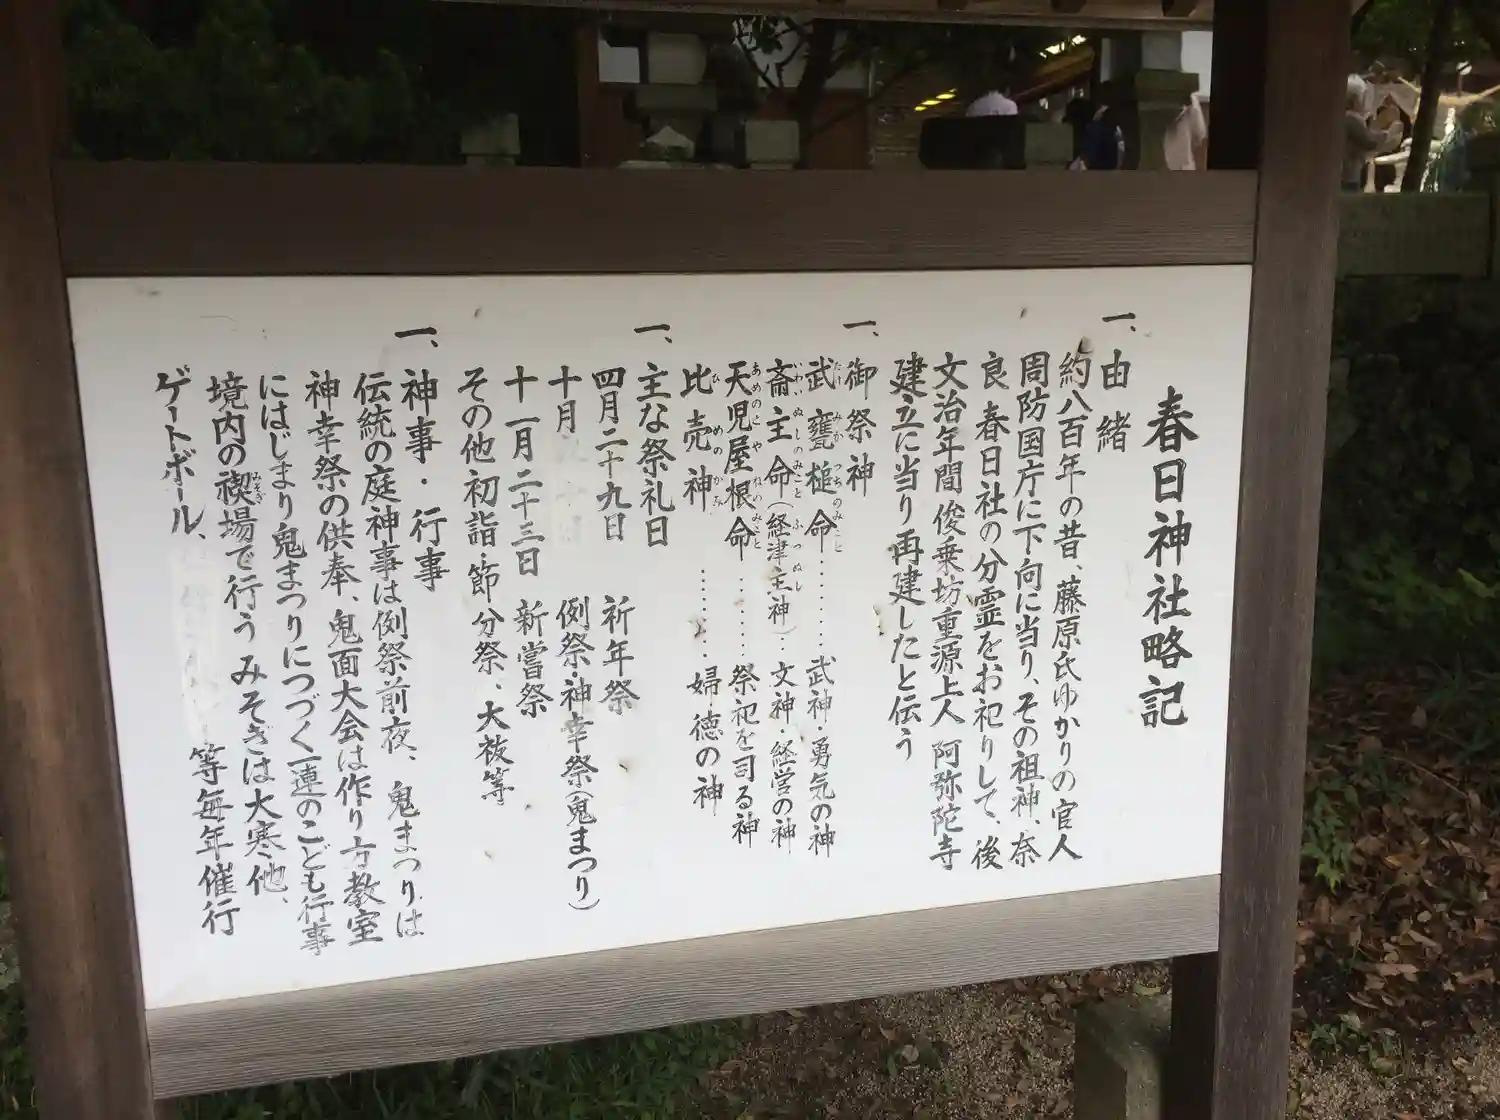 春日神社略記
一、由緒
約八百年の昔、藤原氏ゆかりの官人
周防国庁に下向に当り、その祖神、奈
良春日社の分霊をお祀りして、後
文治年間俊乗坊重源上人阿弥陀寺
建立に当り再建したと伝う
一、御祭神
武甕槌命…………武神・勇気の神
斎主命（経津主神）‥文神・経営の神
天児屋根命…………祭祀を司る神
比売神…………婦徳の神
一、主な祭礼日
四月二十九日 祈年祭
十月 例祭・神幸祭（鬼まつり）
十一月二十三日 新嘗祭
その他初詣・節分祭、大祓等
一、神事・行事
伝統の庭神事は例祭前夜、鬼まつりは
神幸祭の供奉、鬼面大会は作り方教室
にはじまり鬼まつりにつづく一連のこども行事
境内の禊場で行うみそぎは大寒、他、
ゲートボール、 等毎年催行